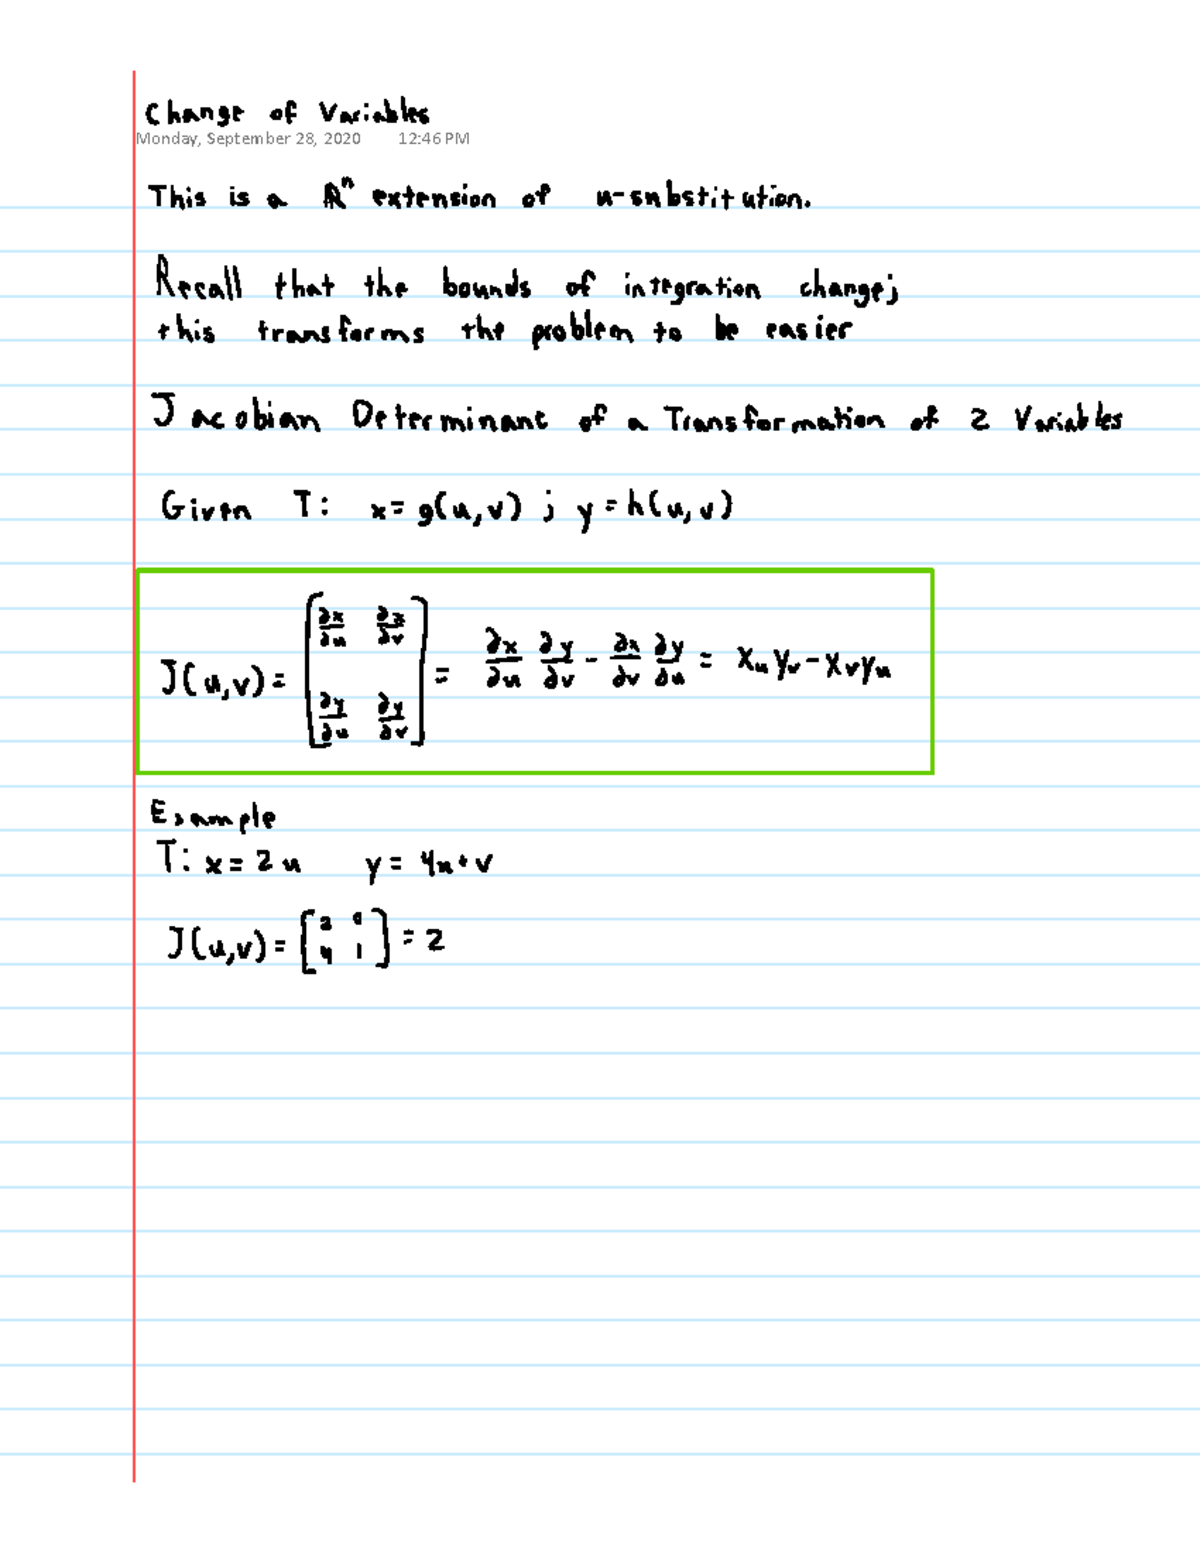 Change of Variables
Monday, September 28, 2020 12:46 PM
This is a ℝⁿ extension of u-substitution.
Recall that the bounds of integration change;
this transforms the problem to be easier
Jacobian Determinant of a Transformation of 2 Variables
Given T: x=g(u,v) ; y=h(u,v)
J(u,v)= [∂x/∂u ∂x/∂v; ∂y/∂u ∂y/∂v] = ∂x/∂u ∂y/∂v - ∂x/∂v ∂y/∂u = xᵤyᵥ-xᵥyᵤ
Example
T: x=2u y=4u+v
J(u,v)= [2 0; 4 1] =2